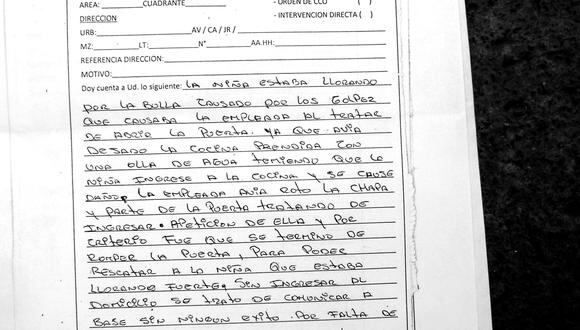 AREA:________CUADRANTE________ - ORDEN DE CCO ( )
DIRECCION - INTERVENCION DIRECTA ( )
URB:____________________AV / CA / JR /____________________
MZ:________LT:________N°________AA.HH:____________________
REFERENCIA DIRECCION:____________________
MOTIVO:____________________
Doy cuenta a Ud. lo siguiente: LA NIÑA ESTABA LLORANDO
POR LA BULLA CAUSADO POR LOS GOLPEZ
QUE CAUSABA LA EMPLEADA AL TRATAR
DE ABRIR LA PUERTA. YA QUE AVIA
DEJADO LA COCINA PRENDIDA CON
UNA OLLA DE AGUA TEMIENDO QUE LA
NIÑA INGRESE A LA COCINA Y SE CAUSE
DAÑO, LA EMPLEADA AVIA ROTO LA CHAPA
Y PARTE DE LA PUERTA TRATANDO DE
INGRESAR. APETICION DE ELLA Y POR
CRITERIO FUE QUE SE TERMINO DE
ROMPER LA PUERTA, PARA PODER
RESCATAR A LA NIÑA QUE ESTABA
LLORANDO FUERTE, SIN INGRESAR AL
DOMICILIO SE TRATO DE COMUNICAR A
BASE SIN NINGUN EXITO. POR FALTA DE